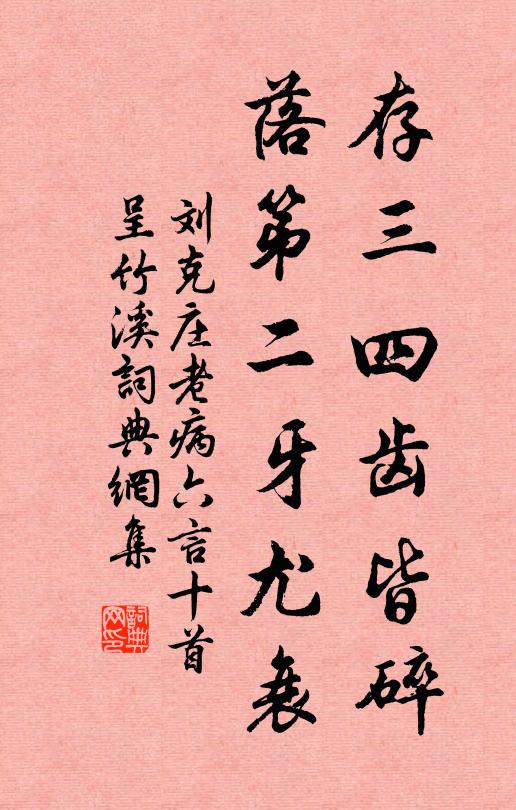 存三四齿皆碎
落第二牙尤衰
刘克庄老病六言十首
呈竹溪詞典網集
詞典网印